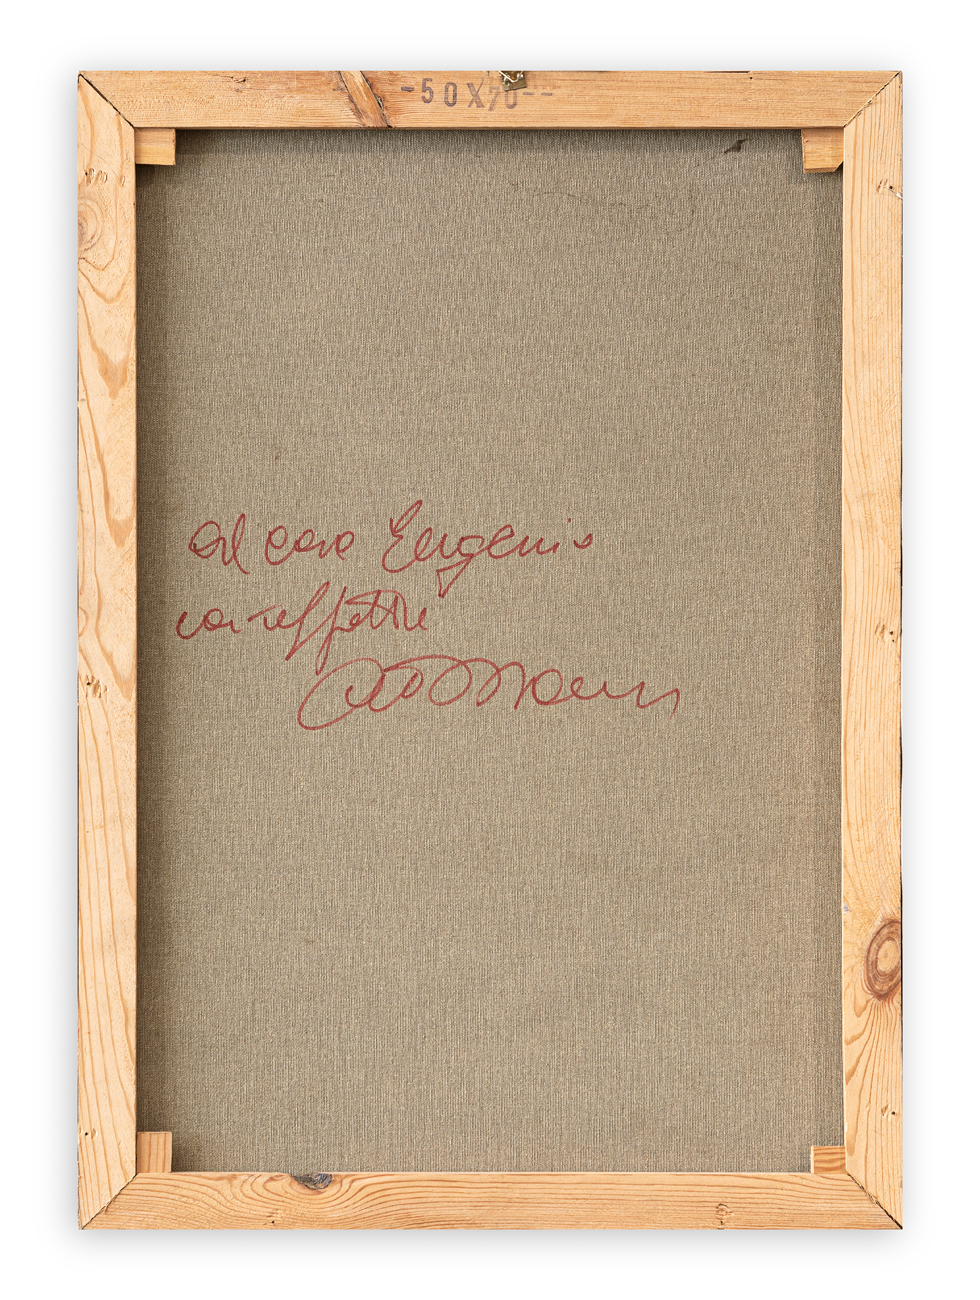 -50X70--
al caro Eugenio
con affetto